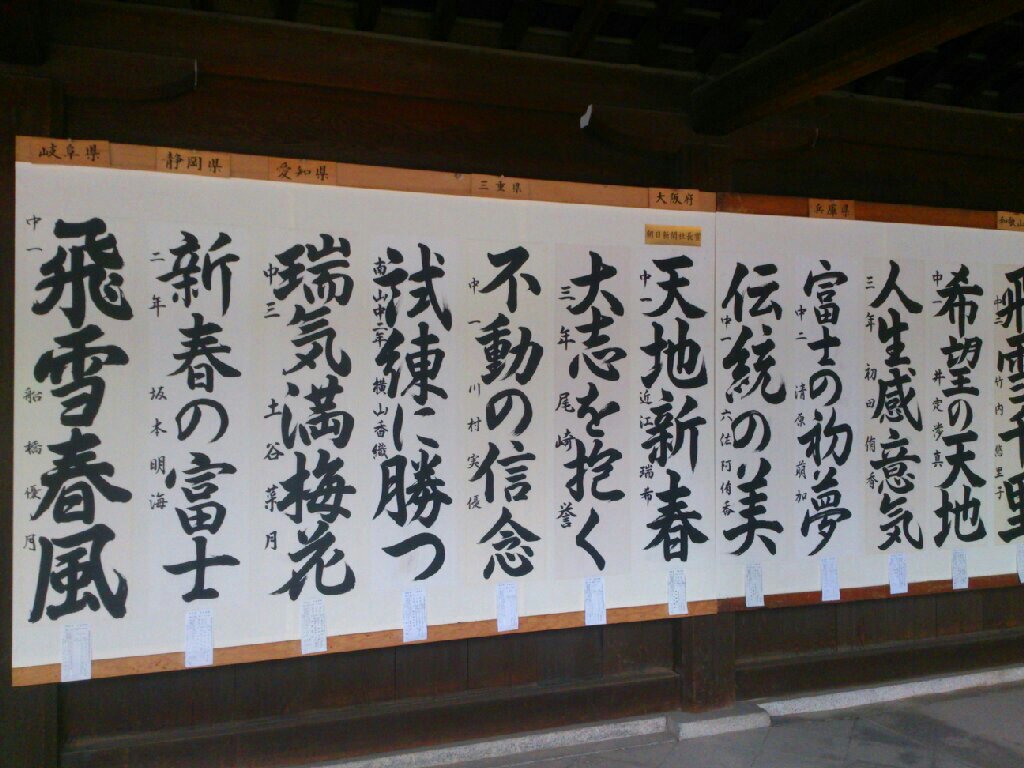 岐阜県
静岡県
愛知県
三重県
大阪府
兵庫県
和歌山
朝日新聞社長賞
飛雪春風
中一 船橋優月
新春の富士
二年 坂本明海
瑞気満梅花
中三 土谷菜月
試練に勝つ
南山中二年 横山香織
不動の信念
中一 川村実優
大志を抱く
三年 尾崎誉
天地新春
中一 近江瑞布
伝統の美
中一 六佐阿侑香
富士の初夢
中二 清原萌加
人生感意気
三年 初田侑香
希望の天地
中一 井定歩真
飛雪千里
竹内悠里子